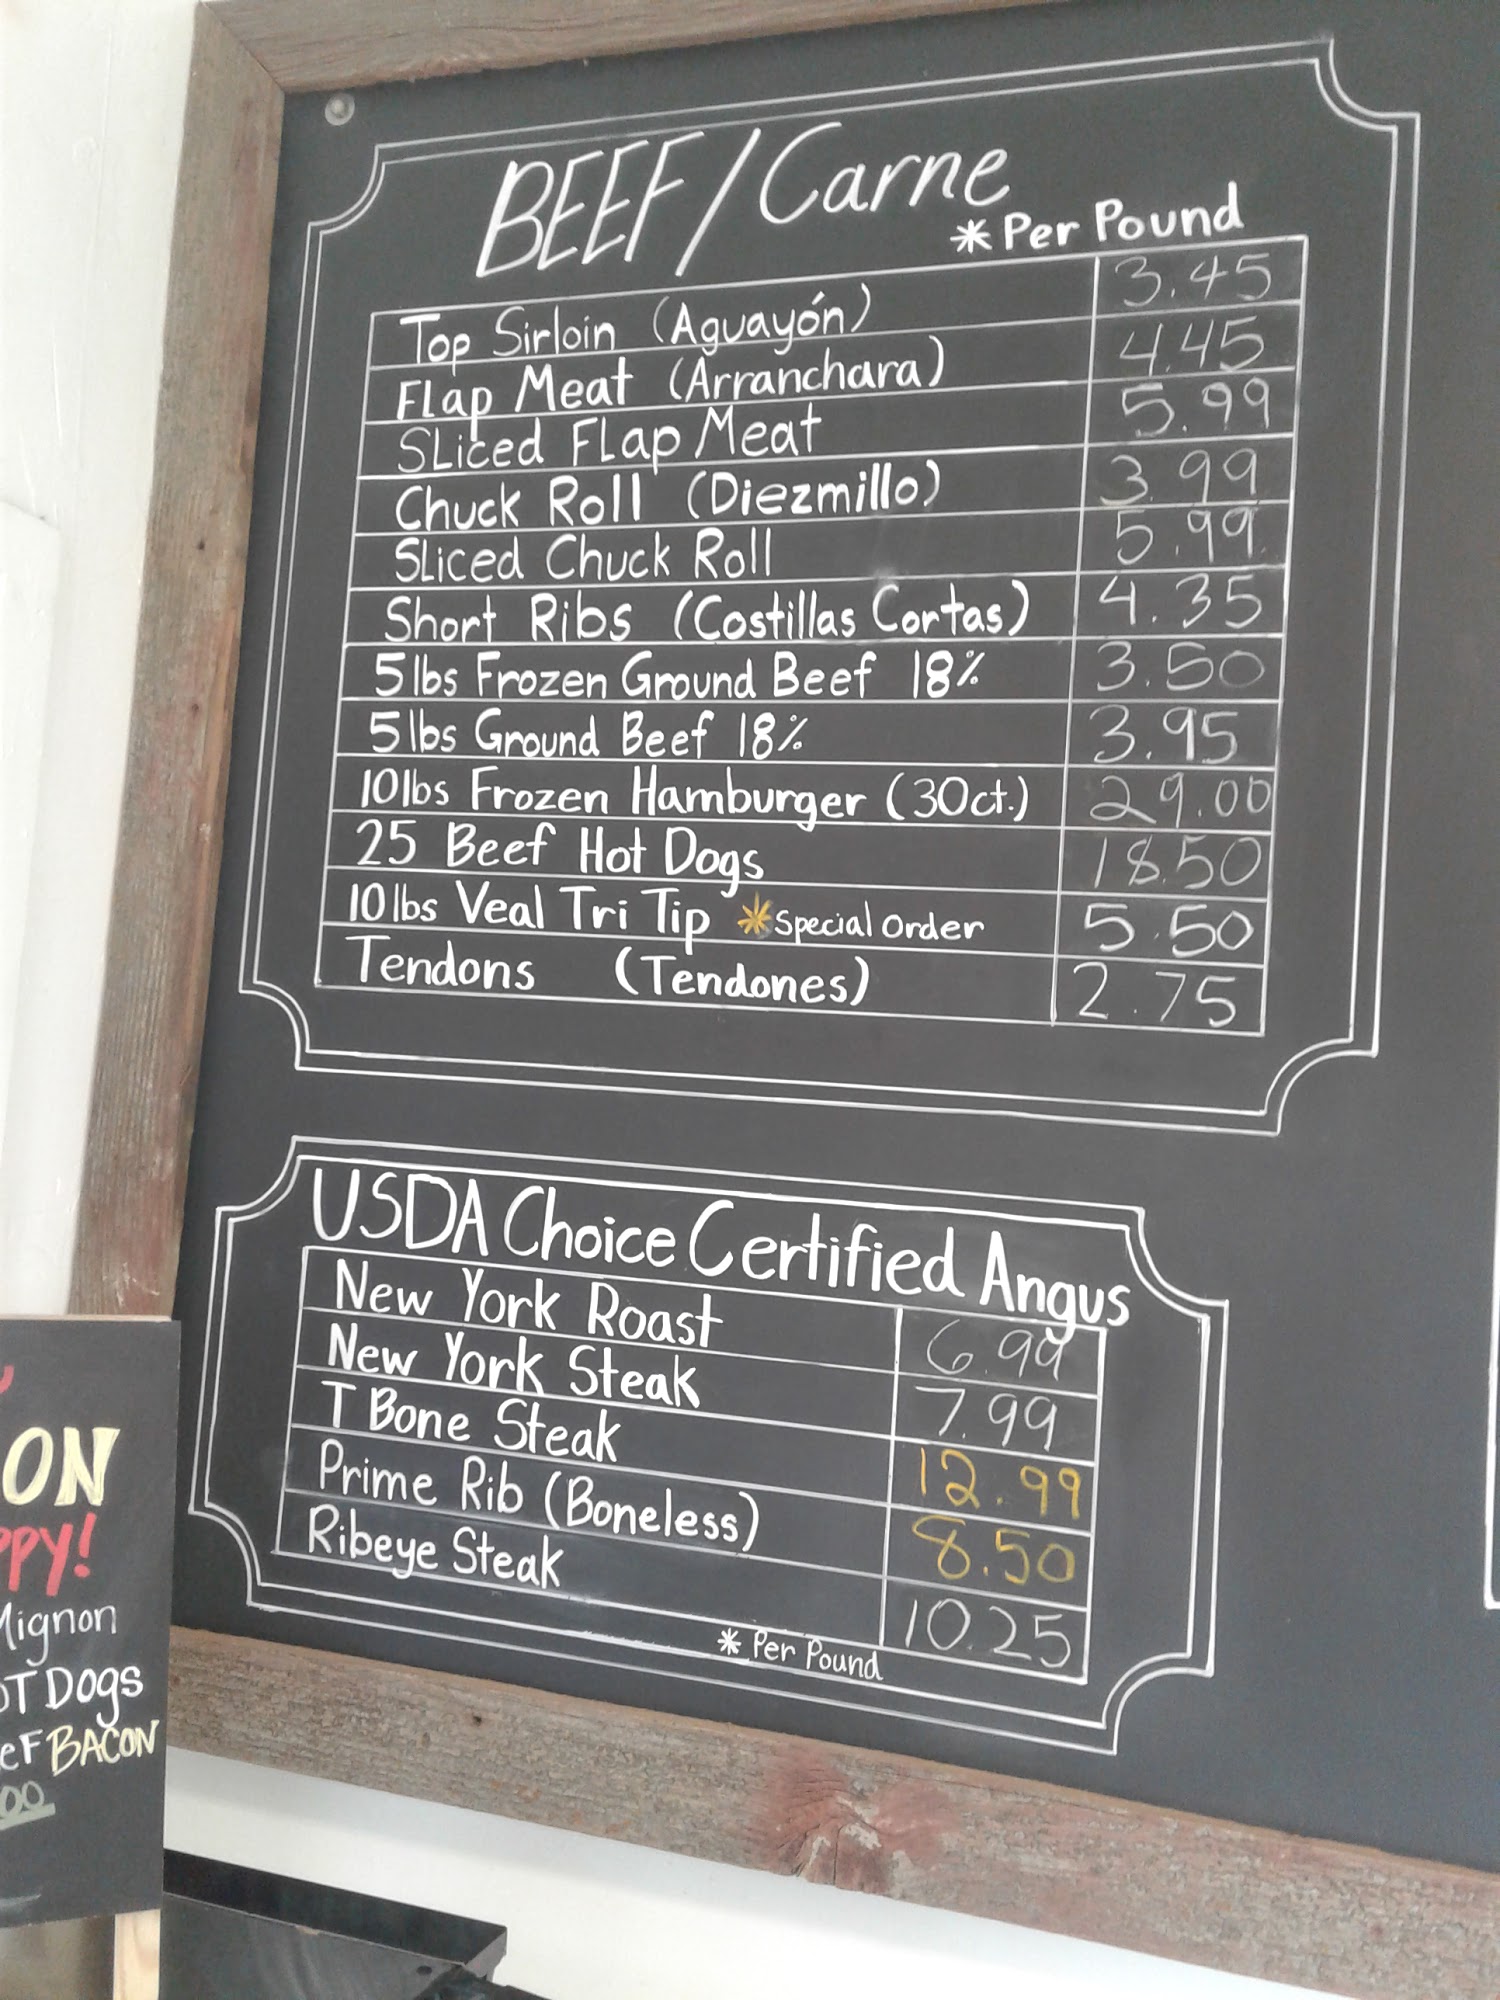 BEEF/Carne
*Per Pound
Top Sirloin (Aguayón) 3.45
Flap Meat (Arranchara) 4.45
Sliced Flap Meat 5.99
Chuck Roll (Diezmillo) 3.99
Sliced Chuck Roll 5.99
Short Ribs (Costillas Cortas) 4.35
5lbs Frozen Ground Beef 18% 3.50
5lbs Ground Beef 18% 3.95
10lbs Frozen Hamburger (30ct.) 29.00
25 Beef Hot Dogs 18.50
10lbs Veal Tri Tip *Special Order 5.50
Tendons (Tendones) 2.75
USDA Choice Certified Angus
New York Roast 6.99
New York Steak 7.99
T Bone Steak 12.99
Prime Rib (Boneless) 8.50
Ribeye Steak 10.25
* Per Pound
ON
PPY!
Mignon
OT DOgS
eF BACON
00